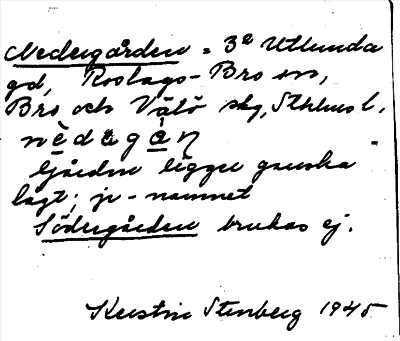 Nedergården = 3e Utlunda
gd, Roslags-Bro sn,
Bro och Vätö skg, Sthlms l.
nèdagån
Gården ligger ganska
lågt; jr-namnet
Södergården brukas ej.
Kerstin Stenberg 1945